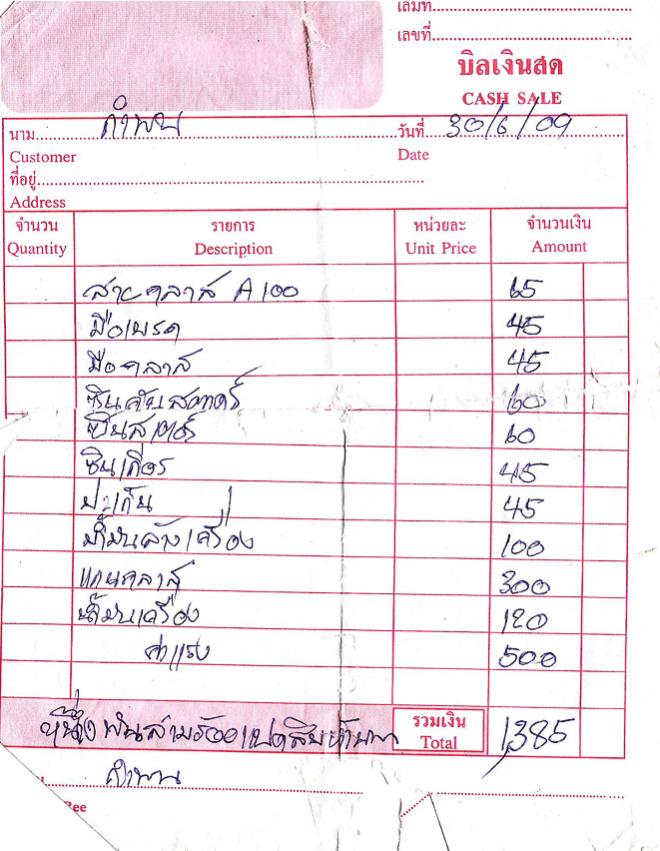 เล่มที่
เลขที่
บิลเงินสด
CASH SALE
นาม คำพน วันที่ 30/6/09
Customer Date
ที่อยู่
Address
จำนวน รายการ หน่วยละ จำนวนเงิน
Quantity Description Unit Price Amount
สายคลาส A100 65
มือเบรค 45
มือคลาส 45
ซีนคันสตาร์ 60
ซีนสตาร์ 60
ซีนเกียร 45
ปะเก็น 45
น้ำมันล้างเครื่อง 100
แกนคลาส 300
น้ำมันเครื่อง 120
ค่าแรง 500
หนึ่งพันสามร้อยแปดสิบห้าบาท รวมเงิน 1,385
Total
คำพน